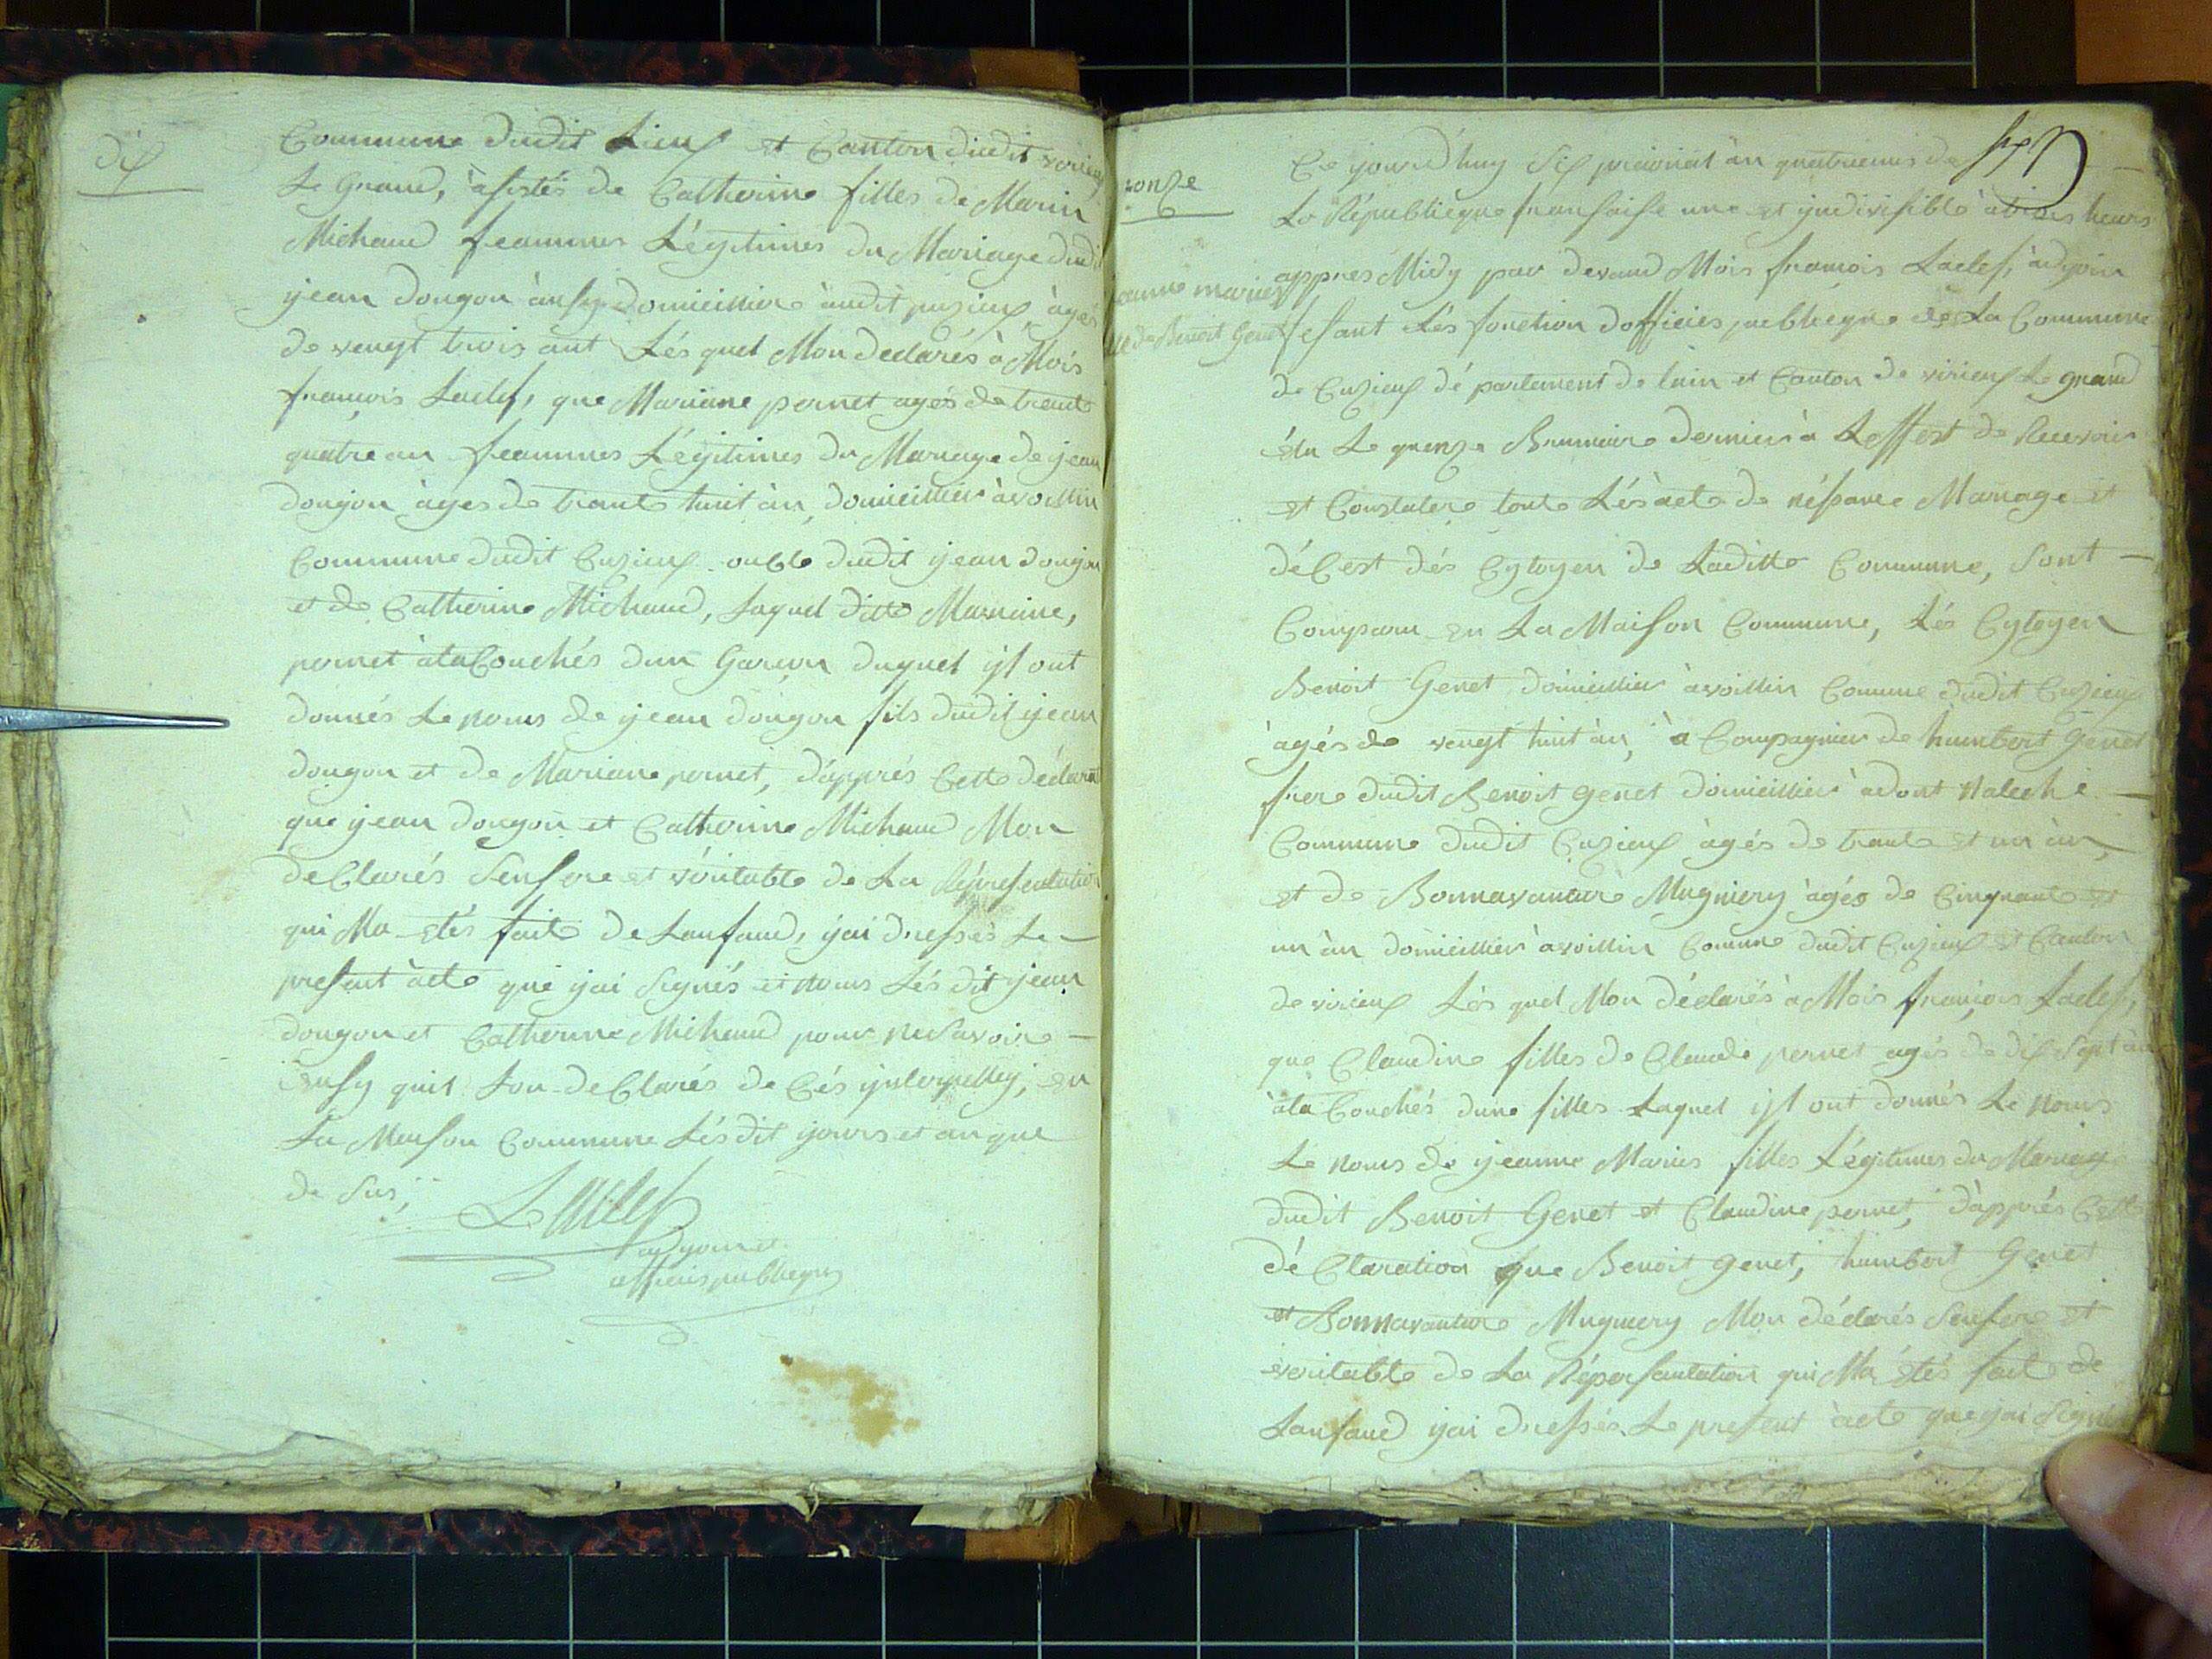 dix
Commune dudit Lieux et Canton dudit virieux
Le Grand, àsistés de Catherine filles de Marin
Michaud feammes Légitimes du Mariage dudit
yean dougon ànsy domicillier àudit puzieux àgés
de vengt trois ant Lés quel Mon declarés à Mois
françois Laclef, que Mariane pernet agés de trante
quatre an feammes Légitimes du Mariage de yean
dougon àges de trante huit àn, domicillier à voillin
Commune dudit Cuzieux oncle dudit yean dougon
et de Catherine Michaud, Laquel ditte Mariane,
pernet àla Couchés dun Garçon duquel yl ont
donnés Le noms de yean dougon fils dudit yean
dougon et de Mariane pernet, dàpprés Cette déclarat
que yean dougon et Catherine Michaud Mon
deClarés Sensere et véritable de La Répresentation
qui Ma etés faite de Lanfand, yai dressés Le
presant àcte que yai Signés et nonts Lés dit yean
dougon et Catherine Michaud pour ne Savoire
ensy quil Lon deClarés de Cés ynterpelley, en
La Maison Commune Lés dit yours et an que
de Sus,
Laclef
adyoint
officies publieque
sept
onze
jeanne maries
fille de Benoit Genet
Ce yourd'huy Six prairial àn quatriemes de
La Républicque fransaise une et yndivisible à trois heurs
appres Midy par devand Mois françois Laclef, àdyoin
fesant Lés fonction dofficies publieque de La Commune
de Cuzieux dé partement de lain et Canton de virieux Le grand
élu Le quenze Brumaire dernier à Leffest de Recevoir
et Constatere toute Lés àcte de néssance Mariage et
déCest dés Cytoyen de Laditte Commune, Sont
Comparu en La Maison Commune, Lés Cytoyen
Benoit Genet domicillier àvoillin Comune dudit Cuzieux
àgés de vengt huit àn, à Compagnier de humbert Genet
frere dudit Benoit genet domicillier àdont Naleche
Commune dudit Cuzieux àgés de trante et un àn,
et de Bonnavanture Mugniery àgés de Cinquante et
un àn domicillier àvoillin Comune dudit Cuzieux et Canton
de virieux Lés quel Mon déclarés à Mois françois Laclef,
que Claudine filles de Claude pernet agés de dix Sept àn
àla Couchés dune filles Laquel yl ont donnés Le noms
Le noms de yeanne Maries filles Légitimes du Mariage
dudit Benoit Genet et Claudine pernet, dàpprés Cette
déClaration que Benoit genet, humbert Genet
et Bonnavanture Mugniery Mon déclarés Sensere et
veritable de La Répersantation qui Ma étés faite de
Lanfand yai dressés Le present àcte que yai Signé